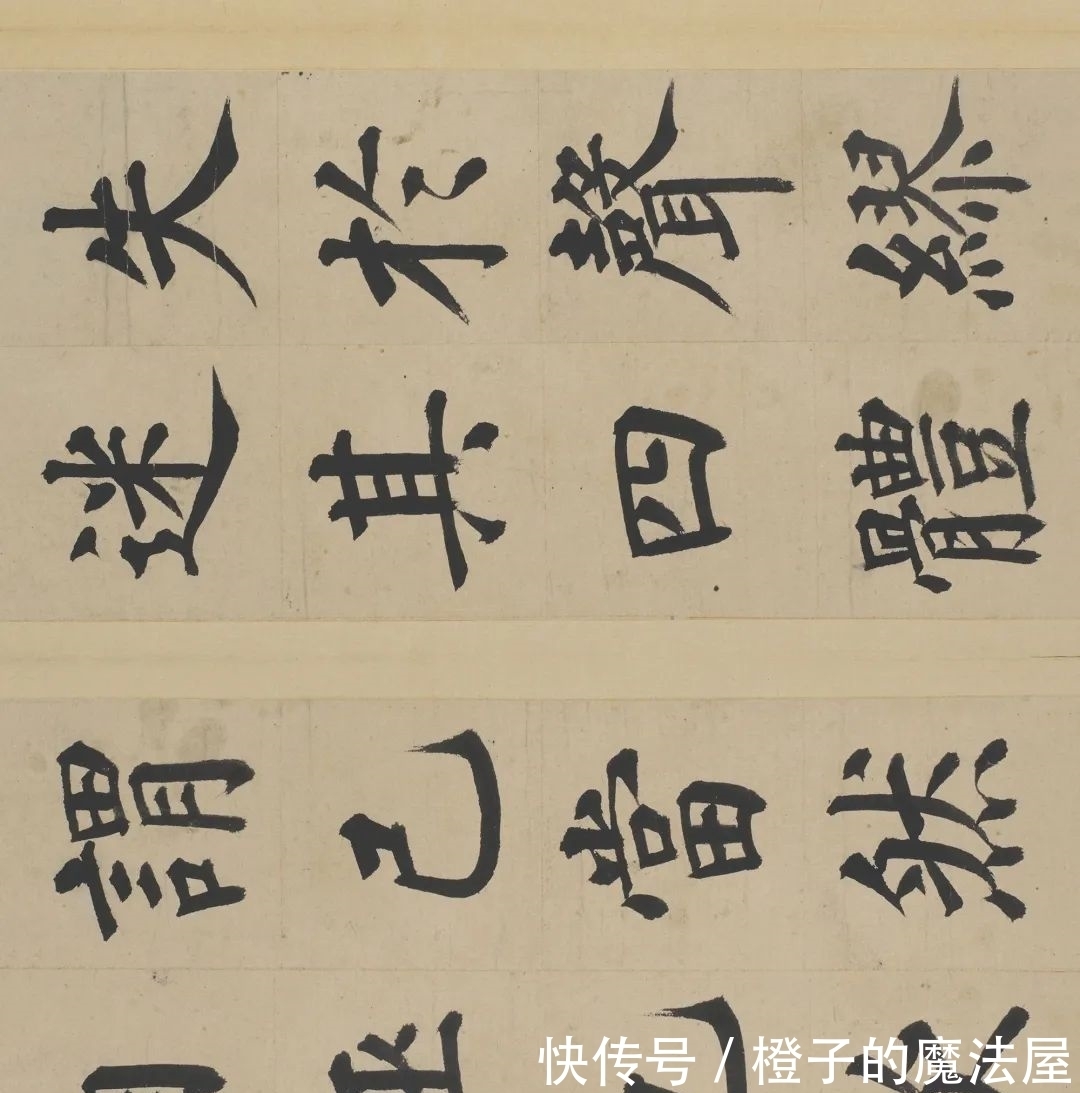 失於聲繆
迷其四體
謂己當然
快传号 / 橙子的魔法屋